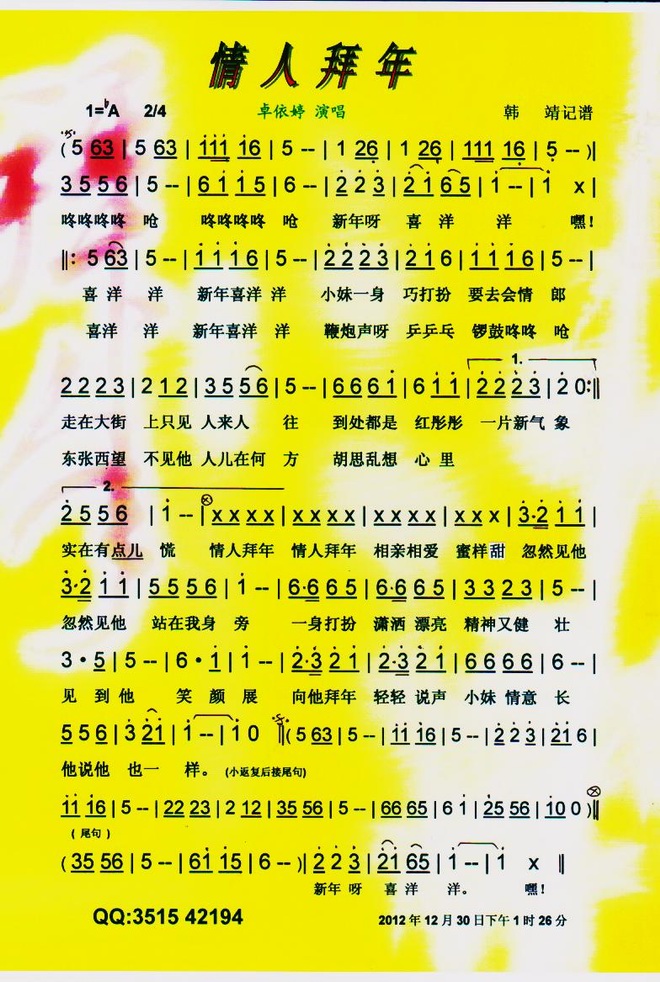 情人拜年
1=♭A 2/4 卓依婷 演唱 韩 靖记谱
( 5 63 | 5 63 | 111 16 | 5 -- | 1 26 | 1 26 | 111 16 | 5 -- )|
3 5 5 6 | 5 -- | 6 1 1 5 | 6 -- | 2 2 3 | 2 1 6 5 | 1 -- | 1 x |
咚咚咚咚 呛 咚咚咚咚 呛 新年呀 喜 洋 洋 嘿!
‖: 5 63 | 5 -- | 1 1 1 6 | 5 -- | 2 2 2 3 | 2 1 6 | 1 1 1 6 | 5 -- |
喜 洋 洋 新年喜洋 洋 小妹一身 巧打扮 要去会情 郎
喜 洋 洋 新年喜洋 洋 鞭炮声呀 乒乒乓 锣鼓咚咚 呛
1.
2 2 2 3 | 2 1 2 | 3 5 5 6 | 5 -- | 6 6 6 1 | 6 1 1 | 2 2 2 3 | 2 0 :‖
走在大街 上只见 人来人 往 到处都是 红彤彤 一片新气 象
东张西望 不见他 人儿在何 方 胡思乱想 心 里
2.
2 5 5 6 | 1 -- | x x x x | x x x x | x x x x | x x x | 3·2 1 1 |
实在有点儿 慌 情人拜年 情人拜年 相亲相爱 蜜样甜 忽然见他
3·2 1 1 | 5 5 5 6 | 1 -- | 6·6 6 5 | 6·6 6 5 | 3 3 2 3 | 5 -- |
忽然见他 站在我身 旁 一身打扮 潇洒 漂亮 精神又健 壮
3 · 5 | 5 -- | 6 · 1 | 1 -- | 2·3 2 1 | 2·3 2 1 | 6 6 6 6 | 6 -- |
见 到他 笑 颜展 向他拜年 轻轻 说声 小妹 情意 长
5 5 6 | 3 21 | 1 -- | 1 0 ‖( 5 63 | 5 -- | 11 16 | 5 -- | 2 2 3 | 21 6 |
他说他 也一 样。 (小返复后接尾句)
11 16 | 5 -- | 22 23 | 2 12 | 35 56 | 5 -- | 66 65 | 6 1 | 25 56 | 10 0 )‖
( 尾句 )
( 35 56 | 5 -- | 61 15 | 6 -- )| 2 2 3 | 21 65 | 1 -- | 1 x ‖
新年 呀 喜 洋 洋。 嘿!
QQ:3515 42194 2012 年 12 月 30 日下午 1 时 26 分